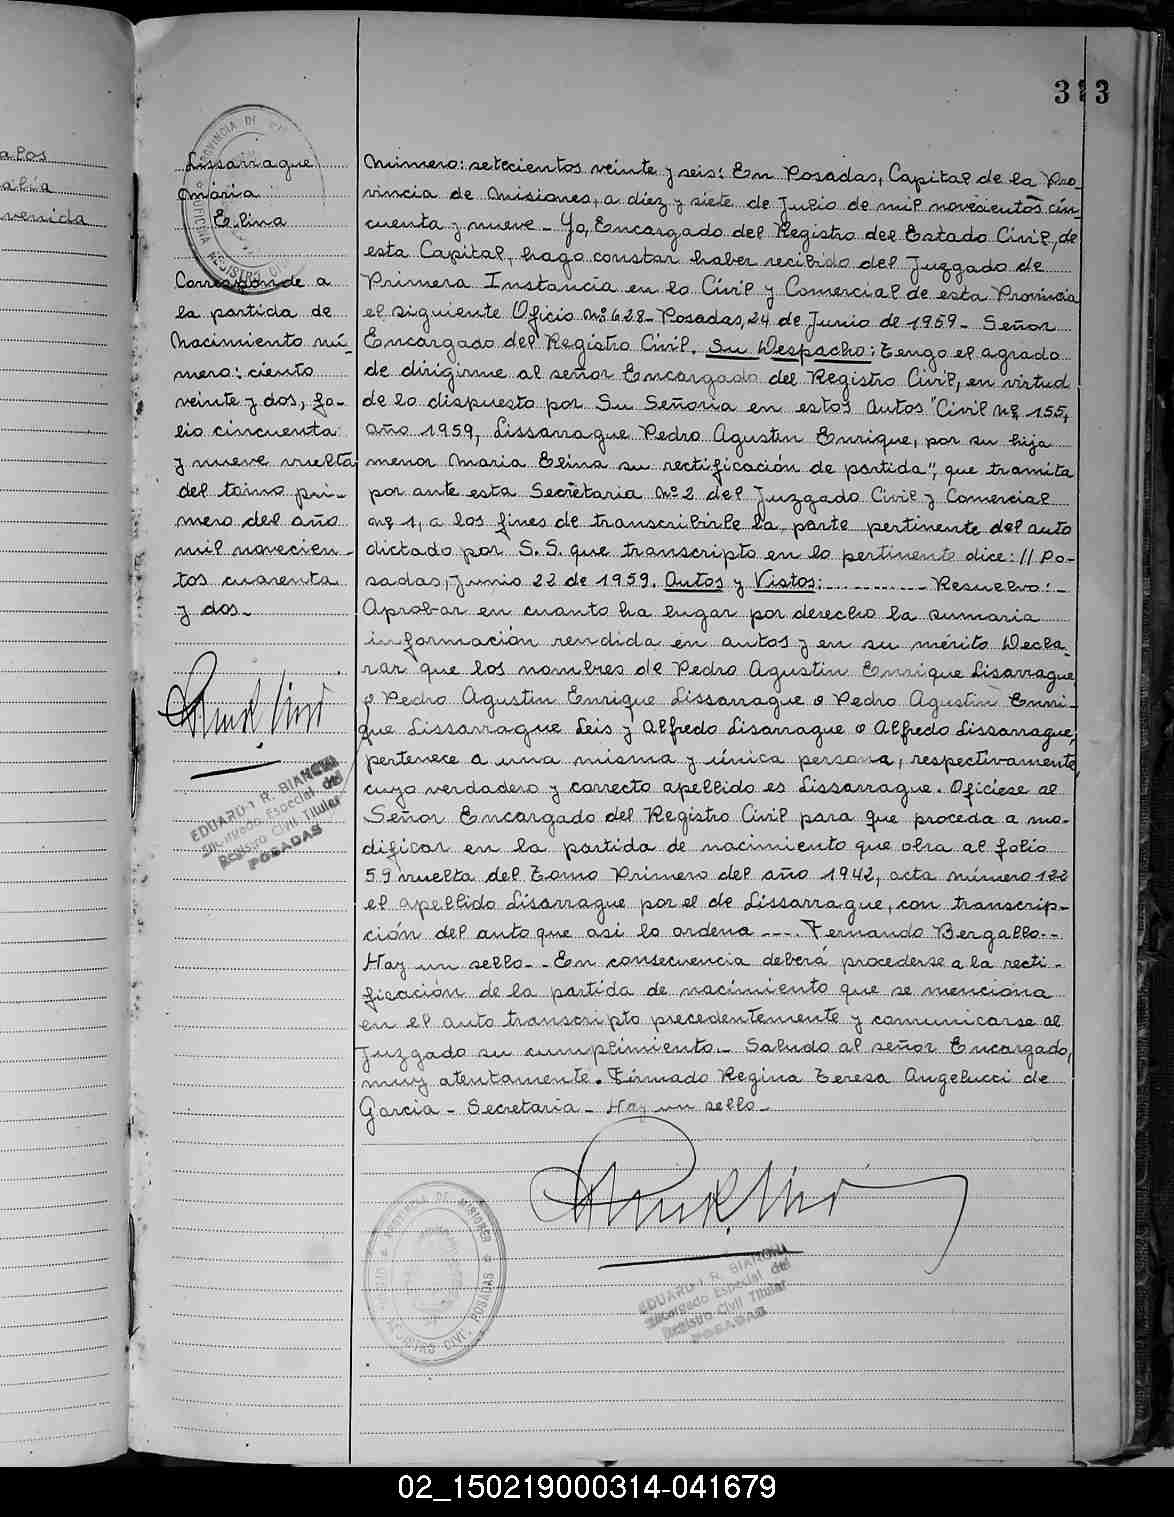 313
alos
alía
venida
Lissarrague
María
Elina
Corresponde a
la partida de
Nacimiento nú-
mero: ciento
veinte y dos, fo-
lio cincuenta
y nueve vuelta
del tomo pri-
mero del año
mil novecien-
tos cuarenta
y dos.-
EDUARDO R. BIANCHI
Encargado Especial del
Registro Civil Titular
POSADAS
Número: setecientos veinte y seis: En Posadas, Capital de la Pro-
vincia de Misiones, a diez y siete de Julio de mil novecientos cin-
cuenta y nueve - Yo, Encargado del Registro del Estado Civil, de
esta Capital, hago constar haber recibido del Juzgado de
Primera Instancia en lo Civil y Comercial de esta Provincia
el siguiente Oficio Nº 628 - Posadas, 24 de Junio de 1959 - Señor
Encargado del Registro Civil. Su Despacho: Tengo el agrado
de dirigirme al señor Encargado del Registro Civil, en virtud
de lo dispuesto por Su Señoría en estos autos "Civil nº 155,
año 1959, Lissarrague Pedro Agustin Enrique, por su hija
menor Maria Elina su rectificación de partida", que tramita
por ante esta Secretaria Nº 2 del Juzgado Civil y Comercial
nº 1, a los fines de transcribirle la parte pertinente del auto
dictado por S.S. que transcripto en lo pertinente dice: // Po-
sadas, Junio 22 de 1959. Autos y Vistos: ............ Resuelvo: -
Aprobar en cuanto ha lugar por derecho la sumaria
información rendida en autos y en su mérito Decla-
rar que los nombres de Pedro Agustin Enrique Lisarrague
o Pedro Agustin Enrique Lissarrague o Pedro Agustin Enri-
que Lissarrague Leis y Alfredo Lisarrague o Alfredo Lissarrague,
pertenece a una misma y única persona, respectivamente,
cuyo verdadero y correcto apellido es Lissarrague. Ofíciese al
Señor Encargado del Registro Civil para que proceda a mo-
dificar en la partida de nacimiento que obra al folio
59 vuelta del Tomo Primero del año 1942, acta número 122
el apellido Lisarrague por el de Lissarrague, con transcrip-
ción del auto que asi lo ordena ---- Fernando Bergallo--
Hay un sello-- En consecuencia deberá procederse a la recti-
ficación de la partida de nacimiento que se menciona
en el auto transcripto precedentemente y comunicarse al
Juzgado su cumplimiento.- Saludo al señor Encargado,
muy atentamente. Firmado Regina Teresa Angelucci de
Garcia - Secretaria - Hay un sello -
EDUARDO R. BIANCHI
Encargado Especial del
Registro Civil Titular
POSADAS
02_150219000314-041679